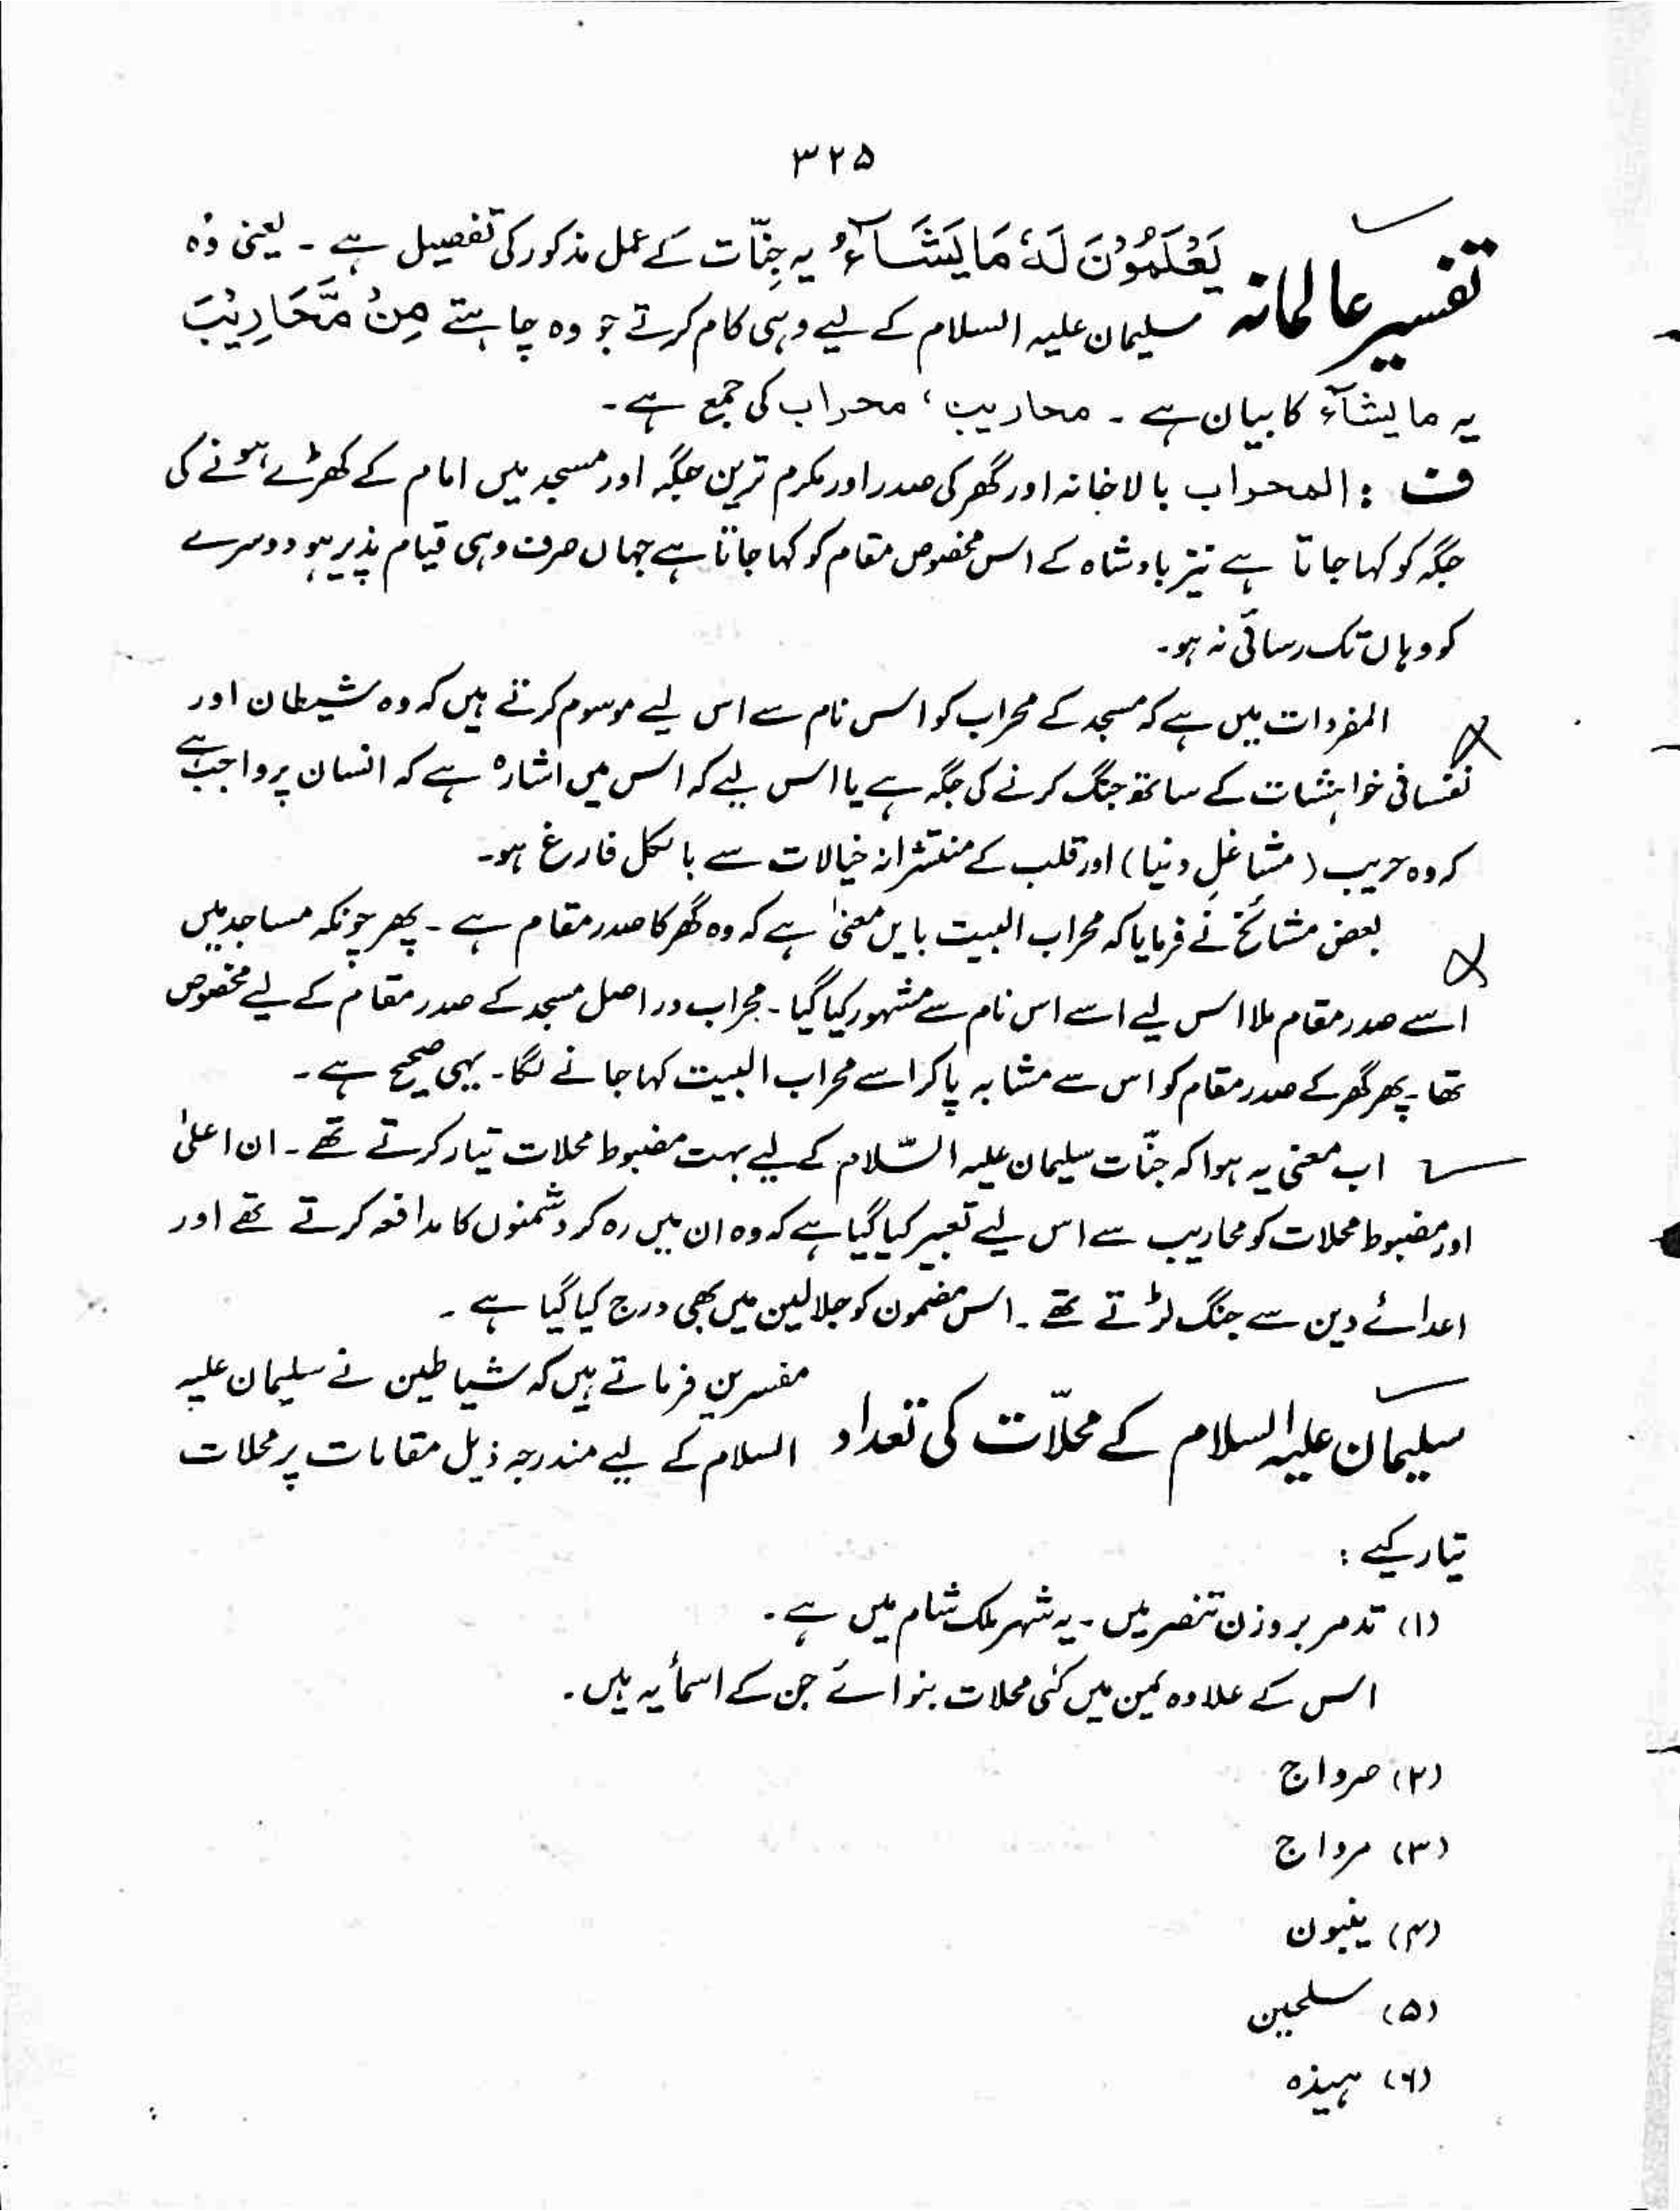 ۳۲۵
تفسیر عالمانہ
یَعْلَمُوْنَ لَہٗ مَا یَشَآءُ یہ جِنّات کے عمل مذکور کی تفصیل ہے ۔ یعنی وُہ
سلیمان علیہ السلام کے لیے وہی کام کرتے جو وہ چاہتے مِنْ مَّحَارِیْبَ
یہ ما یشآء کا بیان ہے ۔ محاریب ، محراب کی جمع ہے ۔
ف : المحراب بالاخانہ اور گھر کی صدر اور مکرم ترین جگہ اور مسجد میں امام کے کھڑے ہونے کی
جگہ کو کہا جاتا ہے نیز بادشاہ کے اس مخصوص مقام کو کہا جاتا ہے جہاں صرف وہی قیام پذیر ہو دوسرے
کو وہاں تک رسائی نہ ہو ۔
المفردات میں ہے کہ مسجد کے محراب کو اس نام سے اس لیے موسوم کرتے ہیں کہ وہ شیطان اور
نفسانی خواہشات کے ساتھ جنگ کرنے کی جگہ ہے یا اس لیے کہ اس میں اشارہ ہے کہ انسان پر واجب ہے
کہ وہ حریب (مشاغلِ دنیا) اور قلب کے منتشرانہ خیالات سے بالکل فارغ ہو ۔
بعض مشائخ نے فرمایا کہ محراب البیت بایں معنیٰ ہے کہ وہ گھر کا صدر مقام ہے ۔ پھر چونکہ مساجد میں
اسے صدر مقام ملا اس لیے اسے اس نام سے مشہور کیا گیا ۔ محراب در اصل مسجد کے صدر مقام کے لیے مخصوص
تھا ۔ پھر گھر کے صدر مقام کو اس سے مشابہ پا کر اسے محراب البیت کہا جانے لگا ۔ یہی صحیح ہے ۔
اب معنی یہ ہوا کہ جنّات سلیمان علیہ السّلام کے لیے بہت مضبوط محلات تیار کرتے تھے ۔ ان اعلیٰ
اور مضبوط محلات کو محاریب سے اس لیے تعبیر کیا گیا ہے کہ وہ ان میں رہ کر دشمنوں کا مدافعہ کرتے تھے اور
اعدائے دین سے جنگ لڑتے تھے ۔ اس مضمون کو جلالین میں بھی درج کیا گیا ہے ۔
سلیمان علیہ السلام کے محلّات کی تعداد
مفسرین فرماتے ہیں کہ شیاطین نے سلیمان علیہ
السلام کے لیے مندرجہ ذیل مقامات پر محلات
تیار کیے :
(۱) تدمر بروزن تنصر میں ۔ یہ شہر ملک شام میں ہے ۔
اس کے علاوہ یمن میں کئی محلات بنوائے جن کے اسمأ یہ ہیں ۔
(۲) صرواج
(۳) مرواج
(۴) ینبون
(۵) سلحین
(۶) ہیذہ